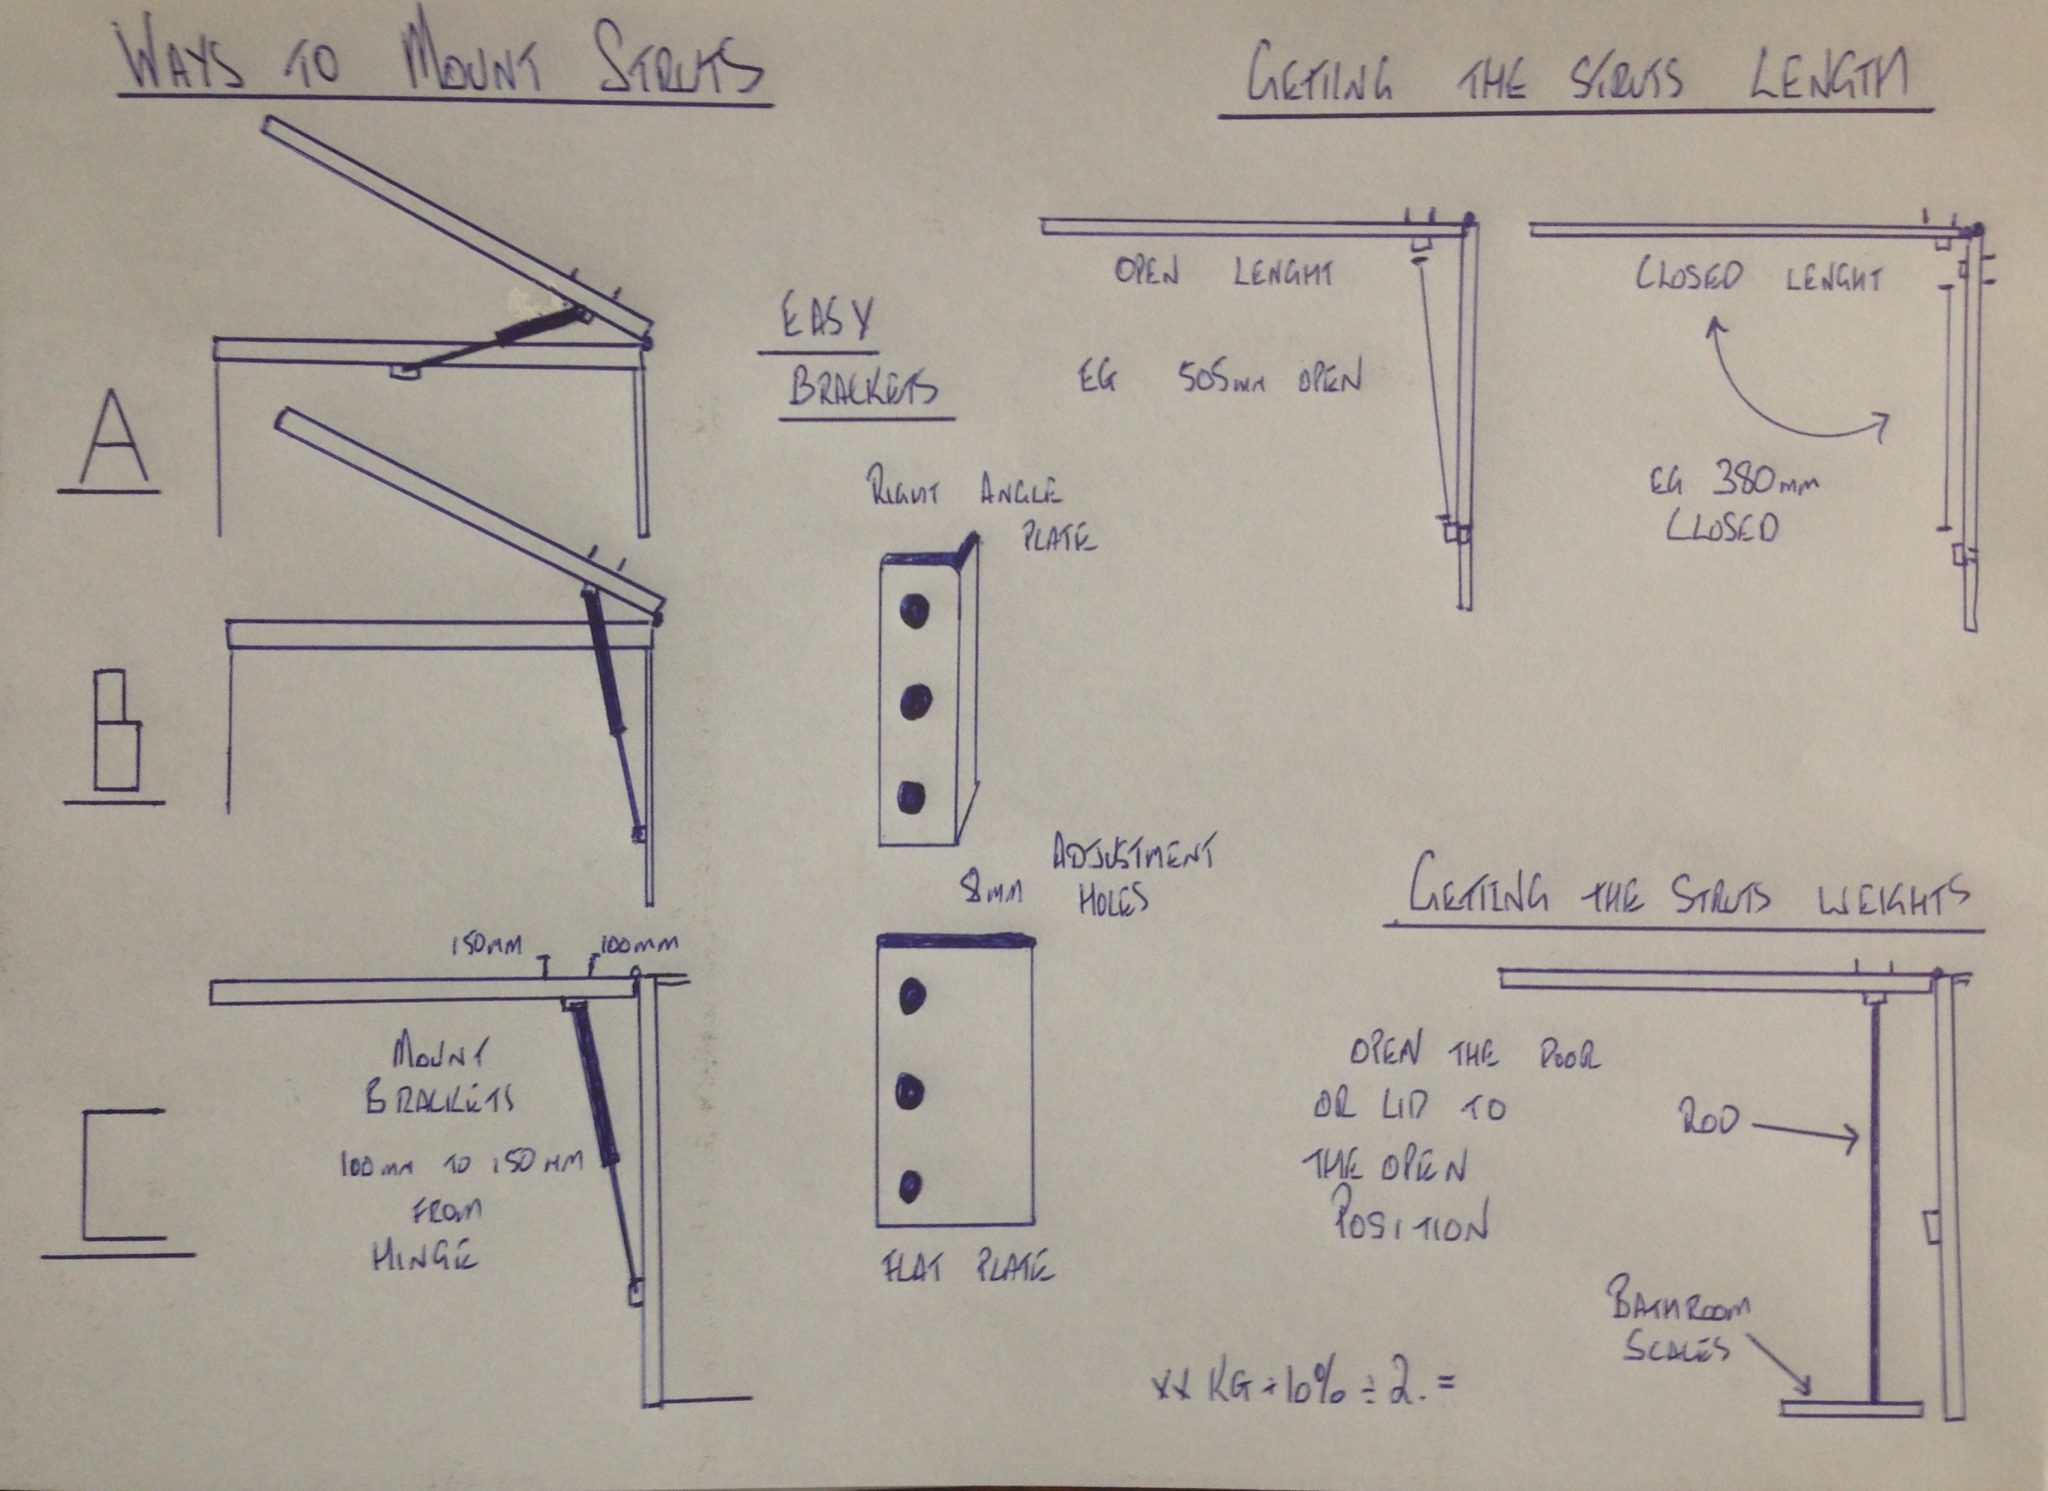 WAYS TO MOUNT STRUTS
A
B
150MM
100MM
MOUNT
BRACKETS
100MM TO 150MM
FROM
HINGE
C
EASY
BRACKETS
RIGHT ANGLE
PLATE
ADJUSTMENT
8MM HOLES
FLAT PLATE
GETTING THE STRUTS LENGTH
OPEN LENGHT
EG 505MM OPEN
CLOSED LENGHT
EG 380MM
CLOSED
GETTING THE STRUTS WEIGHTS
OPEN THE DOOR
OR LID TO
THE OPEN
POSITION
ROD
BATHROOM
SCALES
XX KG + 10% ÷ 2. =